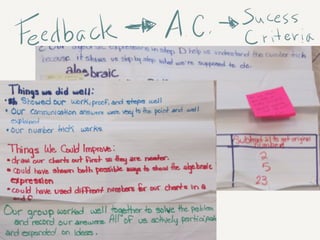 Feedback → A.C. → Sucess
Criteria
c. Our algebraic expression in step D help us understand the number trick
because it shows us step by step what we're supposed to do.
algebraic
Things we did well:
• Showed our work, proof, and steps well
• Our communication answers were very to the point and well
explained
• Our number trick works
Things We Could Improve:
• draw our charts out first so they are neater.
• could have shown both possible ways to show the algebraic
expression
• could have used different numbers for our charts in a
and
Our group worked well together to solve the problem
and record our answers. All of us actively participated
and expanded on ideas.
Subtract 21 to get original
number
2
5
23